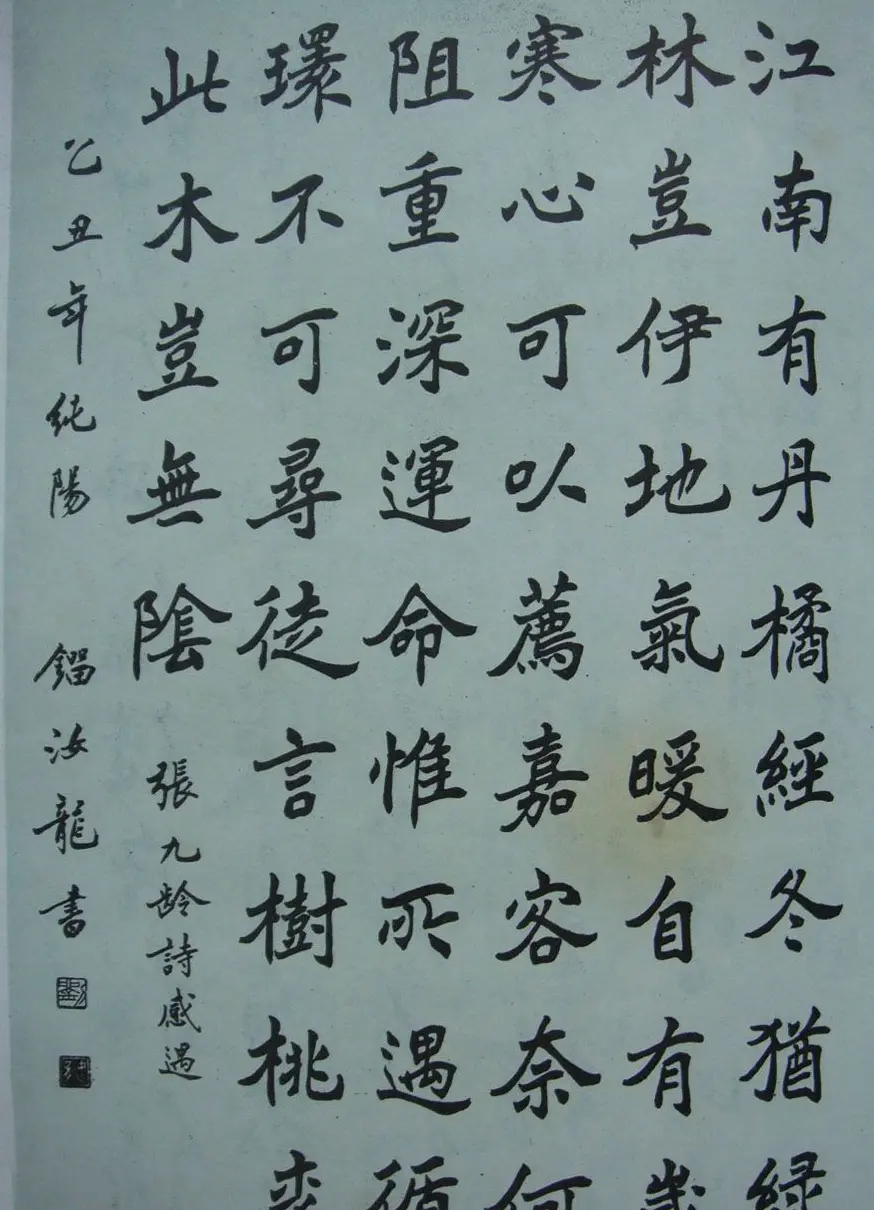 江南有丹橘經冬猶緑
林豈伊地氣暖自有歲
寒心可以薦嘉客奈何
阻重深運命惟所遇循
環不可尋徒言樹桃
此木豈無陰
張九齡詩感遇
乙丑年純陽 鎦汝龍書
劉